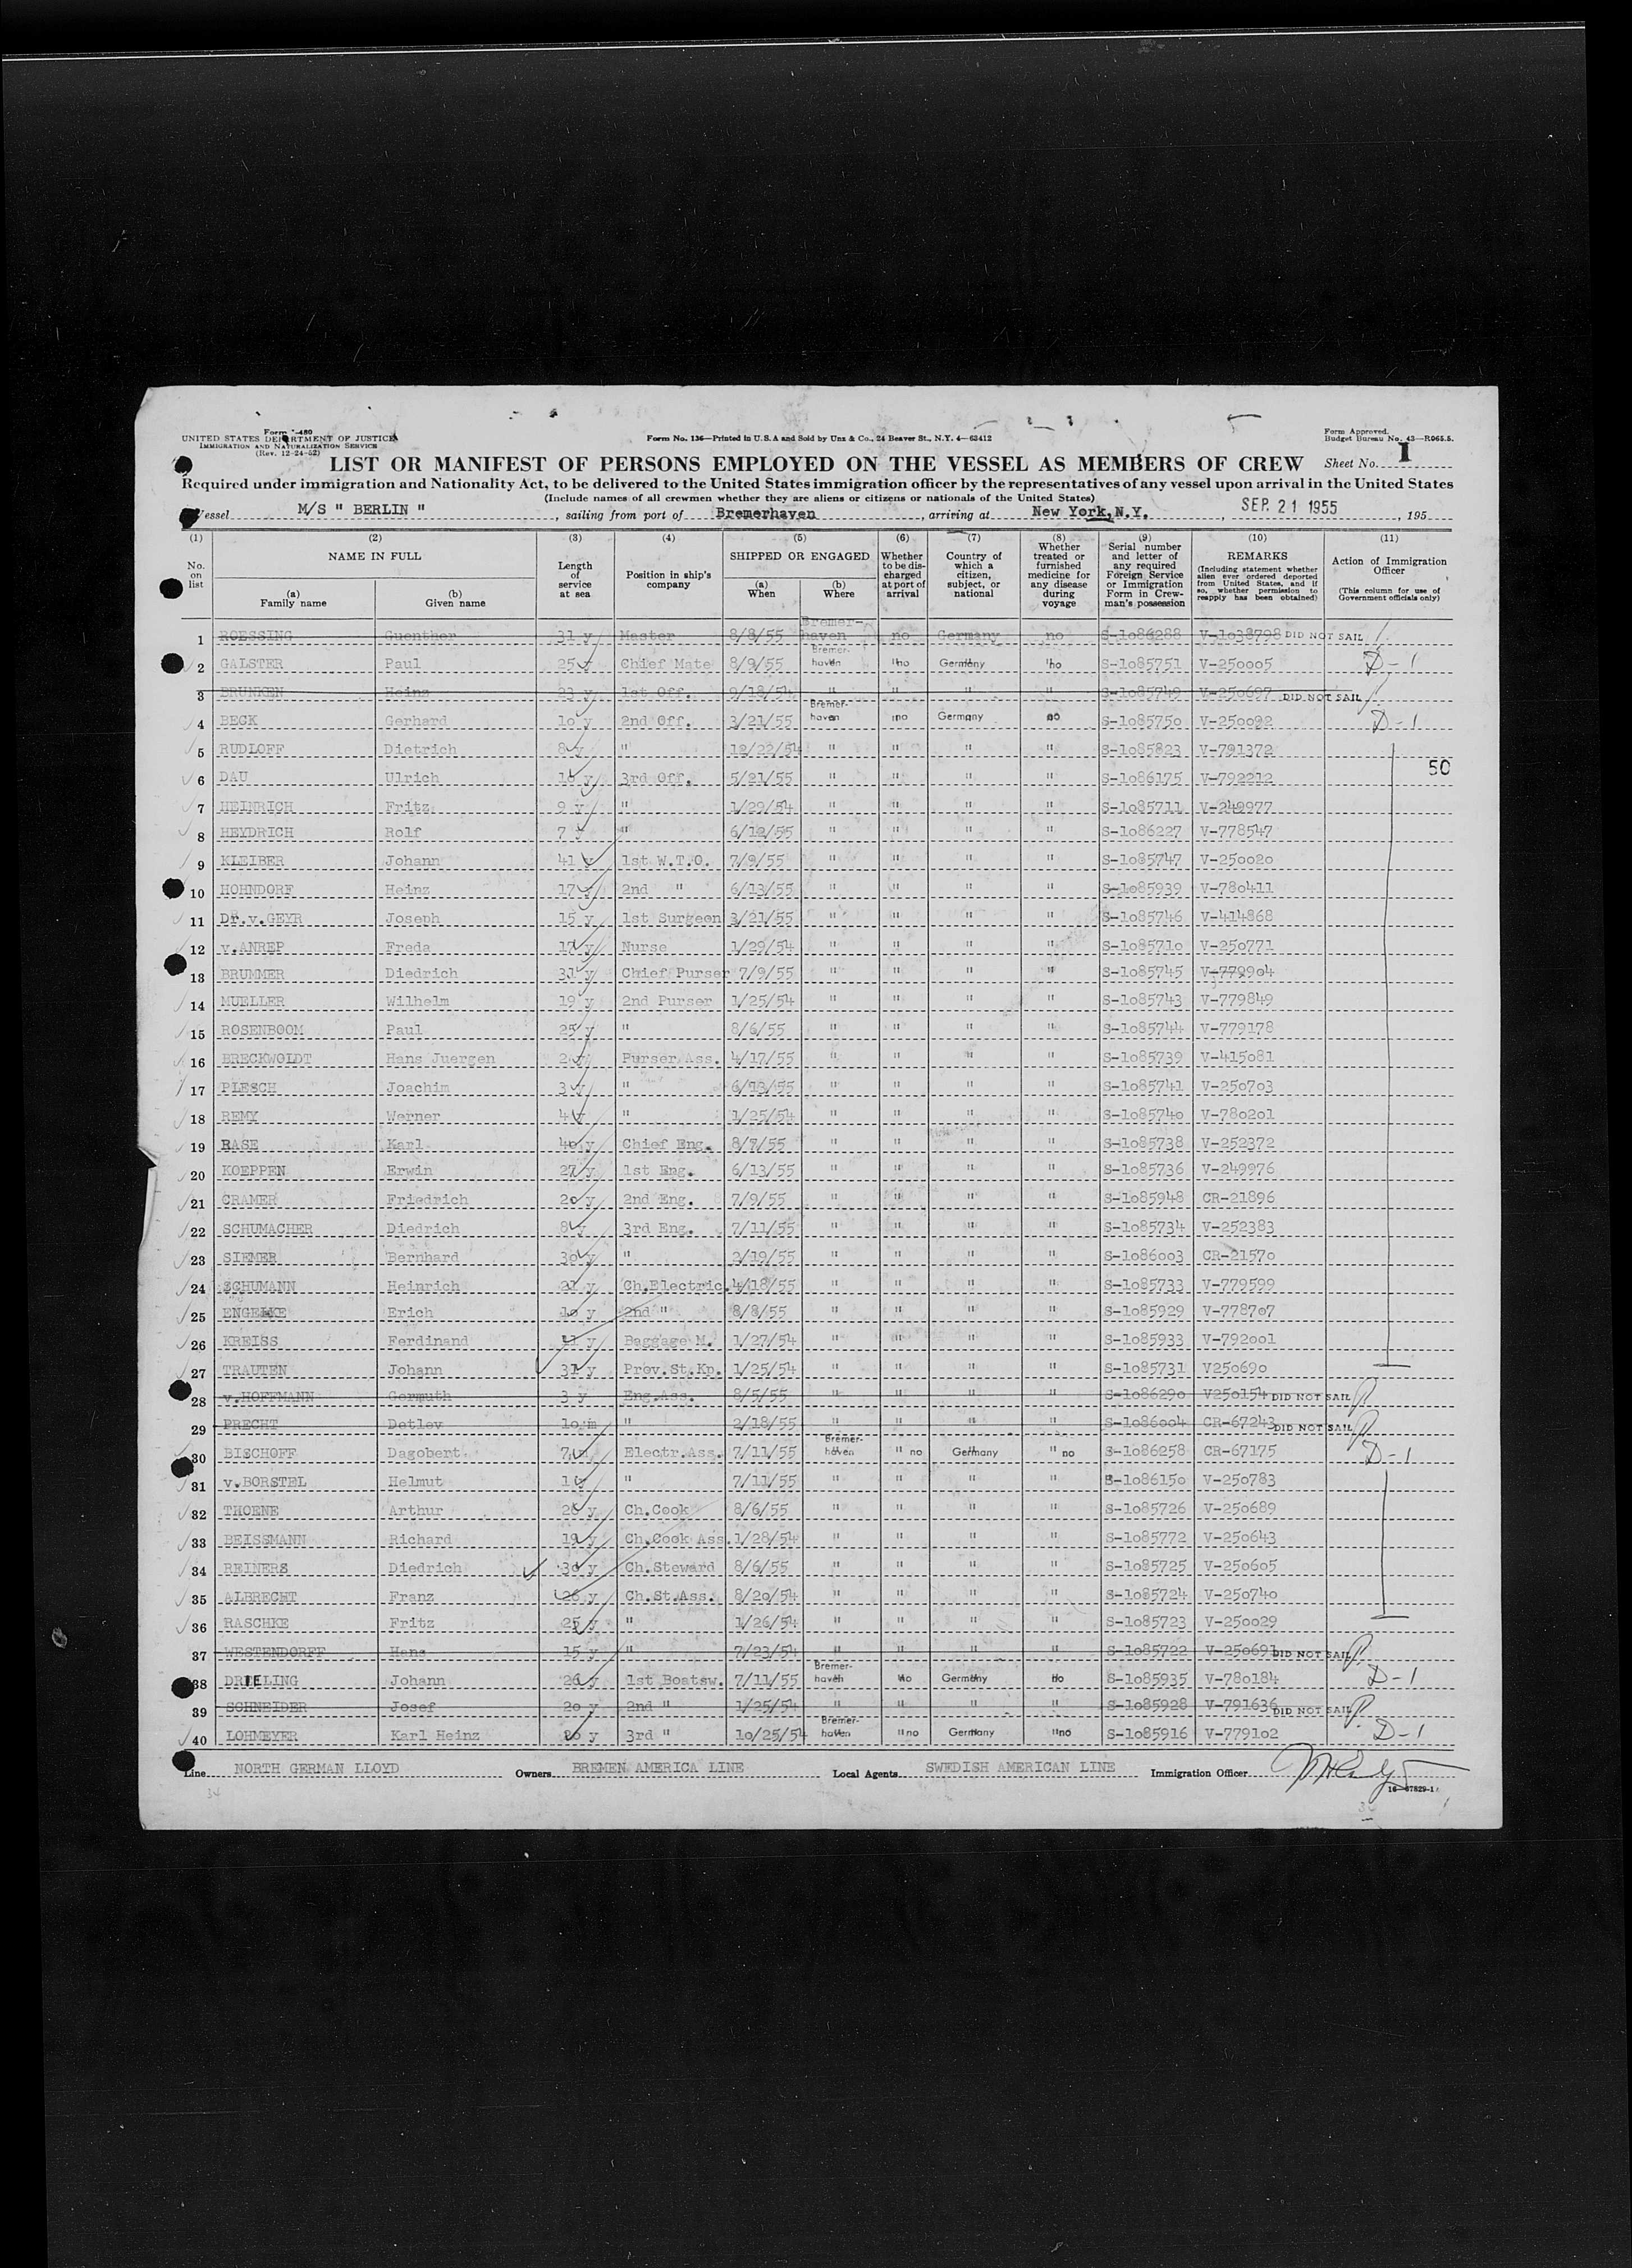 Form I-480
UNITED STATES DEPARTMENT OF JUSTICE
IMMIGRATION AND NATURALIZATION SERVICE
(Rev. 12-24-52)
Form No. 136—Printed in U.S.A and Sold by Unz & Co., 24 Beaver St., N.Y. 4—63412
Form Approved.
Budget Bureau No. 43—R065.5.
LIST OR MANIFEST OF PERSONS EMPLOYED ON THE VESSEL AS MEMBERS OF CREW Sheet No. 1
Required under immigration and Nationality Act, to be delivered to the United States immigration officer by the representatives of any vessel upon arrival in the United States
(Include names of all crewmen whether they are aliens or citizens or nationals of the United States)
Vessel M/S " BERLIN " , sailing from port of Bremerhaven , arriving at New York, N.Y. , SEP. 21 1955 , 195
(1) No. on list
(2) NAME IN FULL (a) Family name (b) Given name
(3) Length of service at sea
(4) Position in ship's company
(5) SHIPPED OR ENGAGED (a) When (b) Where
(6) Whether to be discharged at port of arrival
(7) Country of which a citizen, subject, or national
(8) Whether treated or furnished medicine for any disease during voyage
(9) Serial number and letter of any required Foreign Service or Immigration Form in Crewman's possession
(10) REMARKS (Including statement whether alien ever ordered deported from United States, and if so, whether permission to reapply has been obtained)
(11) Action of Immigration Officer (This column for use of Government officials only)
1 ROESSING Guenther 31 y Master 8/8/55 Bremerhaven no Germany no S-1086288 V-1038798 DID NOT SAIL
2 GALSTER Paul 25 y Chief Mate 8/9/55 Bremerhaven "no Germany "no S-1085751 V-250005 D-1
3 BRUNKEN Heinz 23 y 1st Off. 9/18/54 " " " " S-1085749 V-250697 DID NOT SAIL
4 BECK Gerhard 10 y 2nd Off. 3/21/55 Bremerhaven no Germany no S-1085750 V-250092 D-1
5 RUDLOFF Dietrich 8 y " 12/22/54 " " " " S-1085823 V-791372
50
6 DAU Ulrich 16 y 3rd Off. 5/21/55 " " " " S-1086175 V-792212
7 HEINRICH Fritz 9 y " 1/29/54 " " " " S-1085711 V-249977
8 HEYDRICH Rolf 7 y " 6/12/55 " " " " S-1086227 V-778547
9 KLEIBER Johann 41 y 1st W.T.O. 7/9/55 " " " " S-1085747 V-250020
10 HOHNDORF Heinz 17 y 2nd " 6/13/55 " " " " S-1085939 V-780411
11 Dr.v.GEYR Joseph 15 y 1st Surgeon 3/21/55 " " " " S-1085746 V-414868
12 v.ANREP Freda 17 y Nurse 1/29/54 " " " " S-1085710 V-250771
13 BRUMMER Diedrich 31 y Chief Purser 7/9/55 " " " " S-1085745 V-779904
14 MUELLER Wilhelm 19 y 2nd Purser 1/25/54 " " " " S-1085743 V-779849
15 ROSENBOOM Paul 25 y " 8/6/55 " " " " S-1085744 V-779178
16 BRECKWOLDT Hans Juergen 2 y Purser Ass. 4/17/55 " " " " S-1085739 V-415081
17 PLESCH Joachim 3 y " 6/13/55 " " " " S-1085741 V-250703
18 REMY Werner 4 y " 1/25/54 " " " " S-1085740 V-780201
19 RASE Karl 40 y Chief Eng. 8/7/55 " " " " S-1085738 V-252372
20 KOEPPEN Erwin 27 y 1st Eng. 6/13/55 " " " " S-1085736 V-249976
21 CRAMER Friedrich 20 y 2nd Eng. 7/9/55 " " " " S-1085948 CR-21896
22 SCHUMACHER Diedrich 8 y 3rd Eng. 7/11/55 " " " " S-1085734 V-252383
23 SIEMER Bernhard 30 y " 2/19/55 " " " " S-1086003 CR-21570
24 SCHUMANN Heinrich 21 y Ch.Electric. 4/18/55 " " " " S-1085733 V-779599
25 ENGELKE Erich 10 y 2nd " 8/8/55 " " " " S-1085929 V-778707
26 KREISS Ferdinand 11 y Baggage M. 1/27/54 " " " " S-1085933 V-792001
27 TRAUTEN Johann 31 y Prov.St.Kp. 1/25/54 " " " " S-1085731 V250690
28 v.HOFFMANN Germuth 3 y Eng.Ass. 8/5/55 " " " " S-1086290 V250154 DID NOT SAIL
29 PRECHT Detlev 10 m " 2/18/55 " " " " S-1086004 CR-67243 DID NOT SAIL
30 BISCHOFF Dagobert 7 m Electr.Ass. 7/11/55 Bremerhaven " no Germany " no S-1086258 CR-67175 D-1
31 v.BORSTEL Helmut 1 y " 7/11/55 " " " " S-1086150 V-250783
32 THOENE Arthur 26 y Ch.Cook 8/6/55 " " " " S-1085726 V-250689
33 BEISSMANN Richard 19 y Ch.Cook Ass. 1/28/54 " " " " S-1085772 V-250643
34 REINERS Diedrich 30 y Ch.Steward 8/6/55 " " " " S-1085725 V-250605
35 ALBRECHT Franz 26 y Ch.St.Ass. 8/20/54 " " " " S-1085724 V-250740
36 RASCHKE Fritz 25 y " 1/26/54 " " " " S-1085723 V-250029
37 WESTENDORFF Hans 15 y " 7/23/54 " " " " S-1085722 V-250691 DID NOT SAIL
38 DRIELING Johann 26 y 1st Boatsw. 7/11/55 Bremerhaven no Germany no S-1085935 V-780184 D-1
39 SCHNEIDER Josef 20 y 2nd " 1/25/54 " " " " S-1085928 V-791636 DID NOT SAIL
40 LOHMEYER Karl Heinz 20 y 3rd " 10/25/54 Bremerhaven "no Germany "no S-1085916 V-779102 D-1
Line NORTH GERMAN LLOYD Owners BREMEN AMERICA LINE Local Agents SWEDISH AMERICAN LINE Immigration Officer
16—67829-1